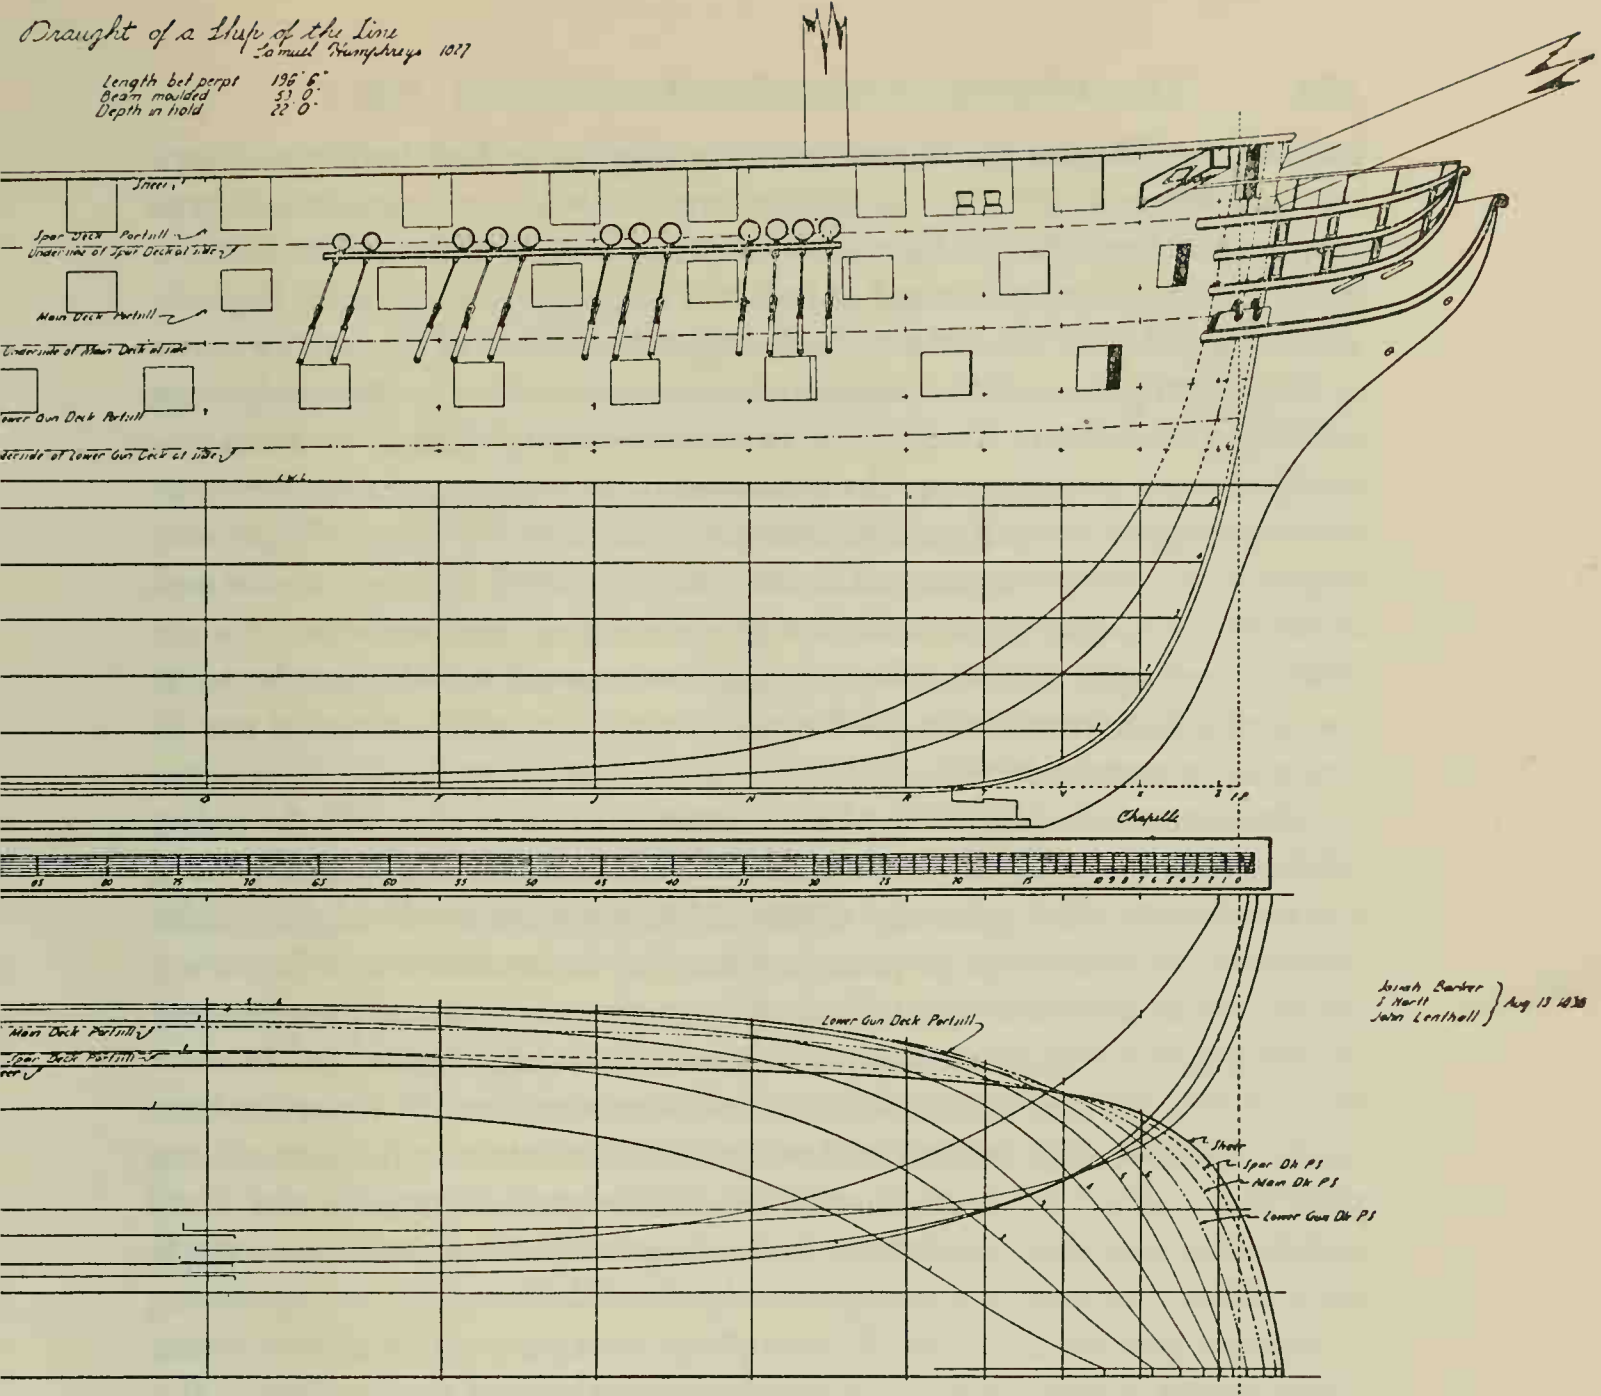 Draught of a Ship of the Line
Samuel Humphreys 1827
Length bet perps 196' 6"
Beam moulded 53' 0"
Depth in hold 22' 0"
Sheer
Spar Deck Portsill
Underside of Spar Deck at side
Main Deck Portsill
Underside of Main Deck at side
Lower Gun Deck Portsill
Underside of Lower Gun Deck at side
L.W.L.
F.P.
Chapelle
85 80 75 70 65 60 55 50 45 40 35 30 25 20 15 10 9 8 7 6 5 4 3 2 1 0
Josiah Barker
S Hartt
John Lenthall
Aug 13
Main Deck Portsill
Lower Gun Deck Portsill
Spar Deck Portsill
Sheer
Spar Dk PS
Main Dk PS
Lower Gun Dk PS